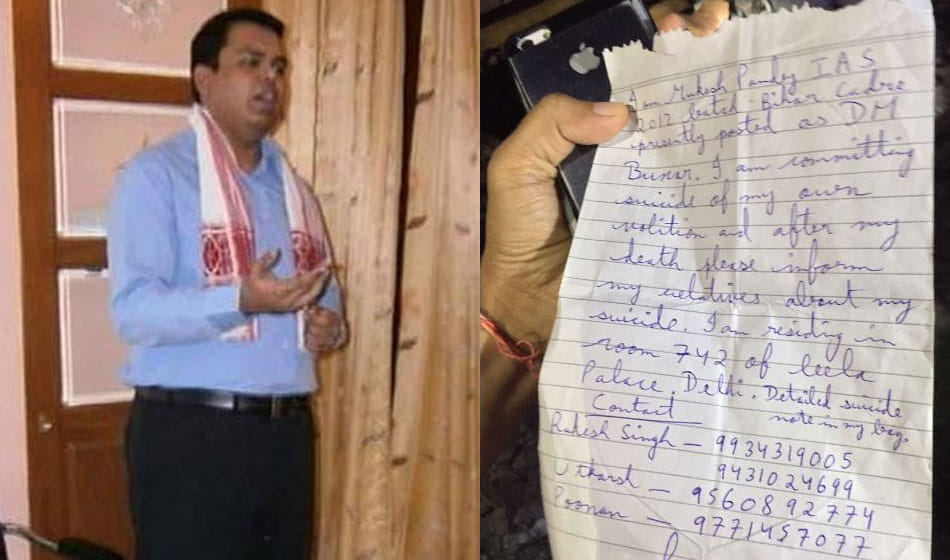 I am Mukesh Pandey IAS
2012 batch Bihar Cadre
presently posted as DM
Buxar. I am committing
suicide of my own
volition and after my
death please inform
my relatives about my
suicide. I am residing in
room 742 of leela
Palace, Delhi. Detailed suicide
note in my bag.
Contact
Rakesh Singh – 9934319005
9431024699
Utkarsh – 9560892774
Poonam – 9771457077